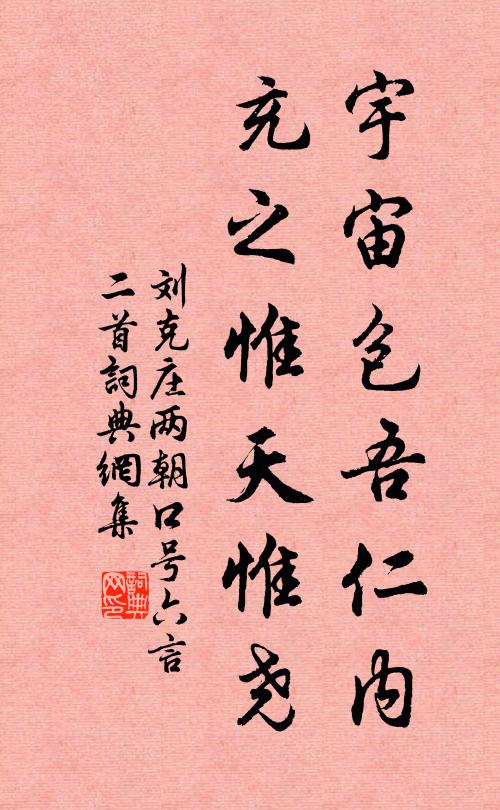 宇宙包吾仁内
充之惟天惟尧
刘克庄两朝口号六言
二首詞典網集
詞典
网印